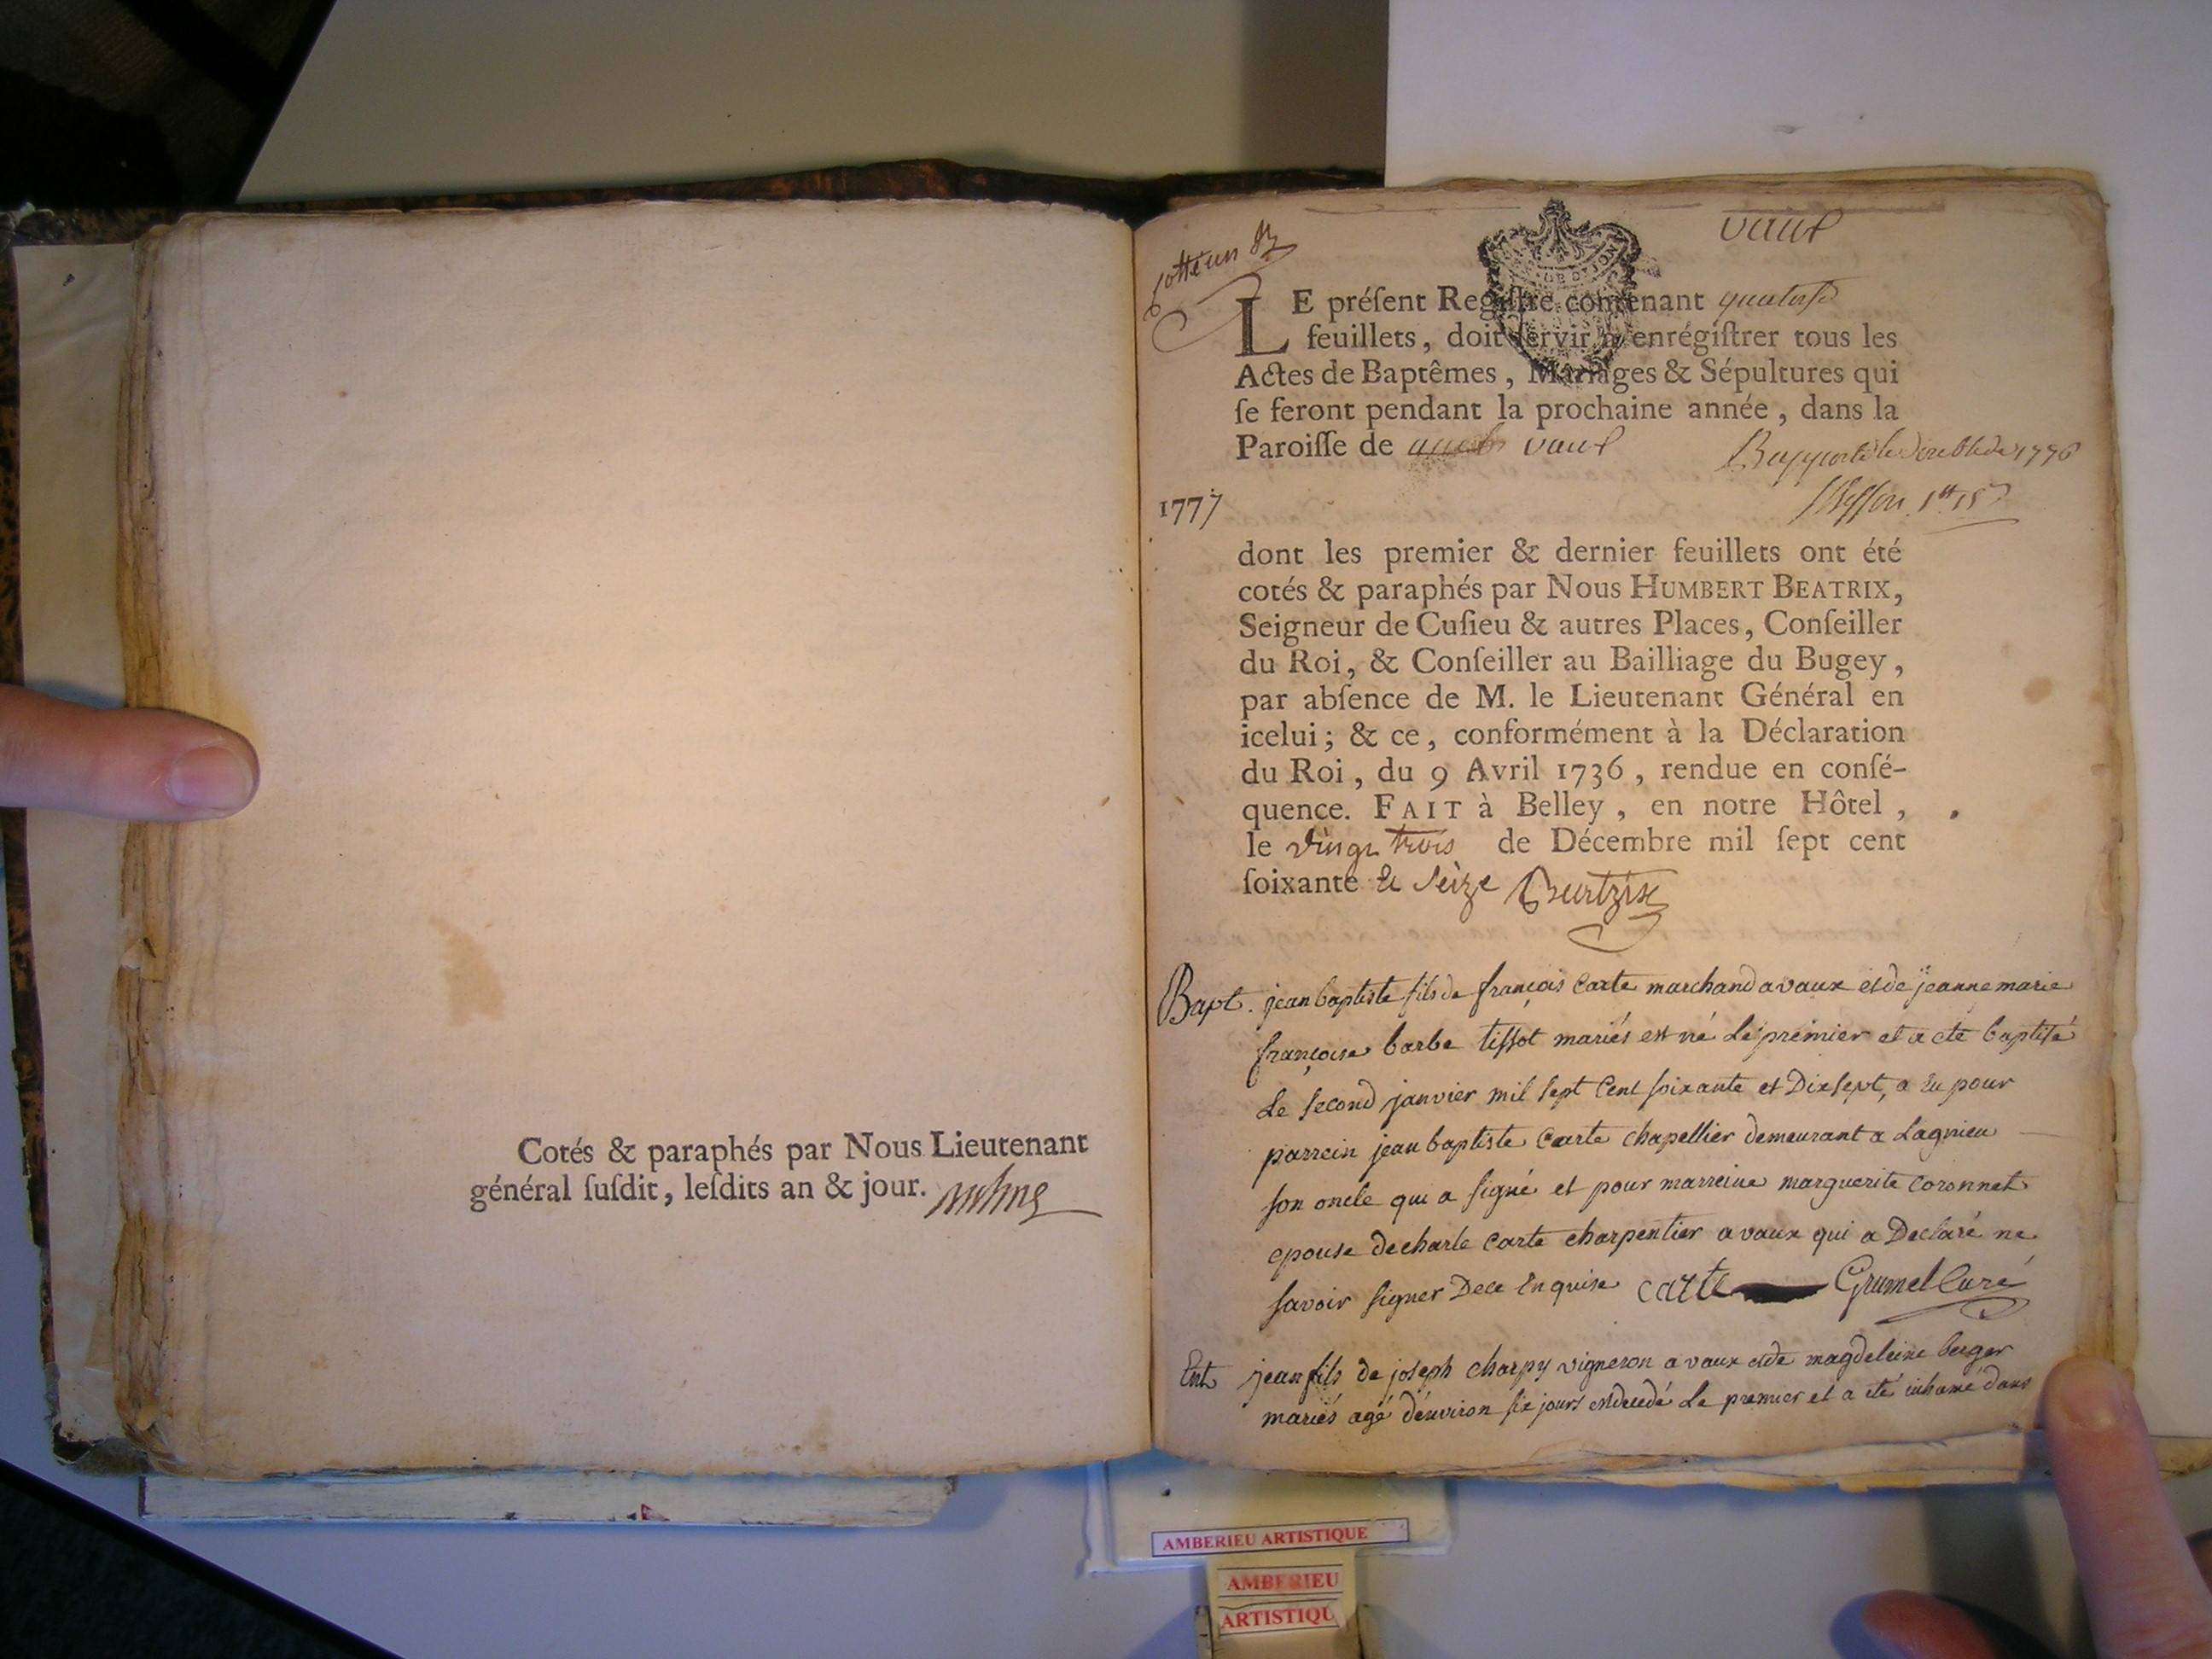 Cotés & paraphés par Nous Lieutenant
général ſuſdit, leſdits an & jour.
vaux
LE préſent Regiſtre contenant quatorſe
feuillets, doit ſervir à enrégiſtrer tous les
Actes de Baptêmes, Mariages & Sépultures qui
ſe feront pendant la prochaine année, dans la
Paroiſſe de vaux
1777
dont les premier & dernier feuillets ont été
cotés & paraphés par Nous HUMBERT BEATRIX,
Seigneur de Cuſieu & autres Places, Conſeiller
du Roi, & Conſeiller au Bailliage du Bugey,
par abſence de M. le Lieutenant Général en
icelui; & ce, conformément à la Déclaration
du Roi, du 9 Avril 1736, rendue en conſé-
quence. FAIT à Belley, en notre Hôtel,
le vingt trois de Décembre mil ſept cent
ſoixante & seize
Bapt. jean baptiste fils de françois Carte marchand a vaux et de jeanne marie
françoise barbe tissot mariés est né Le premier et a eté baptisé
Le second janvier mil sept Cent soixante et Dix sept, a eu pour
parrein jean baptiste Carte chapellier demeurant a Lagnieu
son oncle qui a signé et pour marreine marguerite Coronnet
epouse de charle Carte charpentier a vaux qui a Declaré ne
savoir signer De ce Enquise carte Grumel Curé
Ent jean fils de joseph charpy vigneron a vaux et de magdeleine berger
mariés agé d'environ six jours est decedé Le premier et a eté inhumé dans
AMBERIEU ARTISTIQUE
AMBERIEU
ARTISTIQU